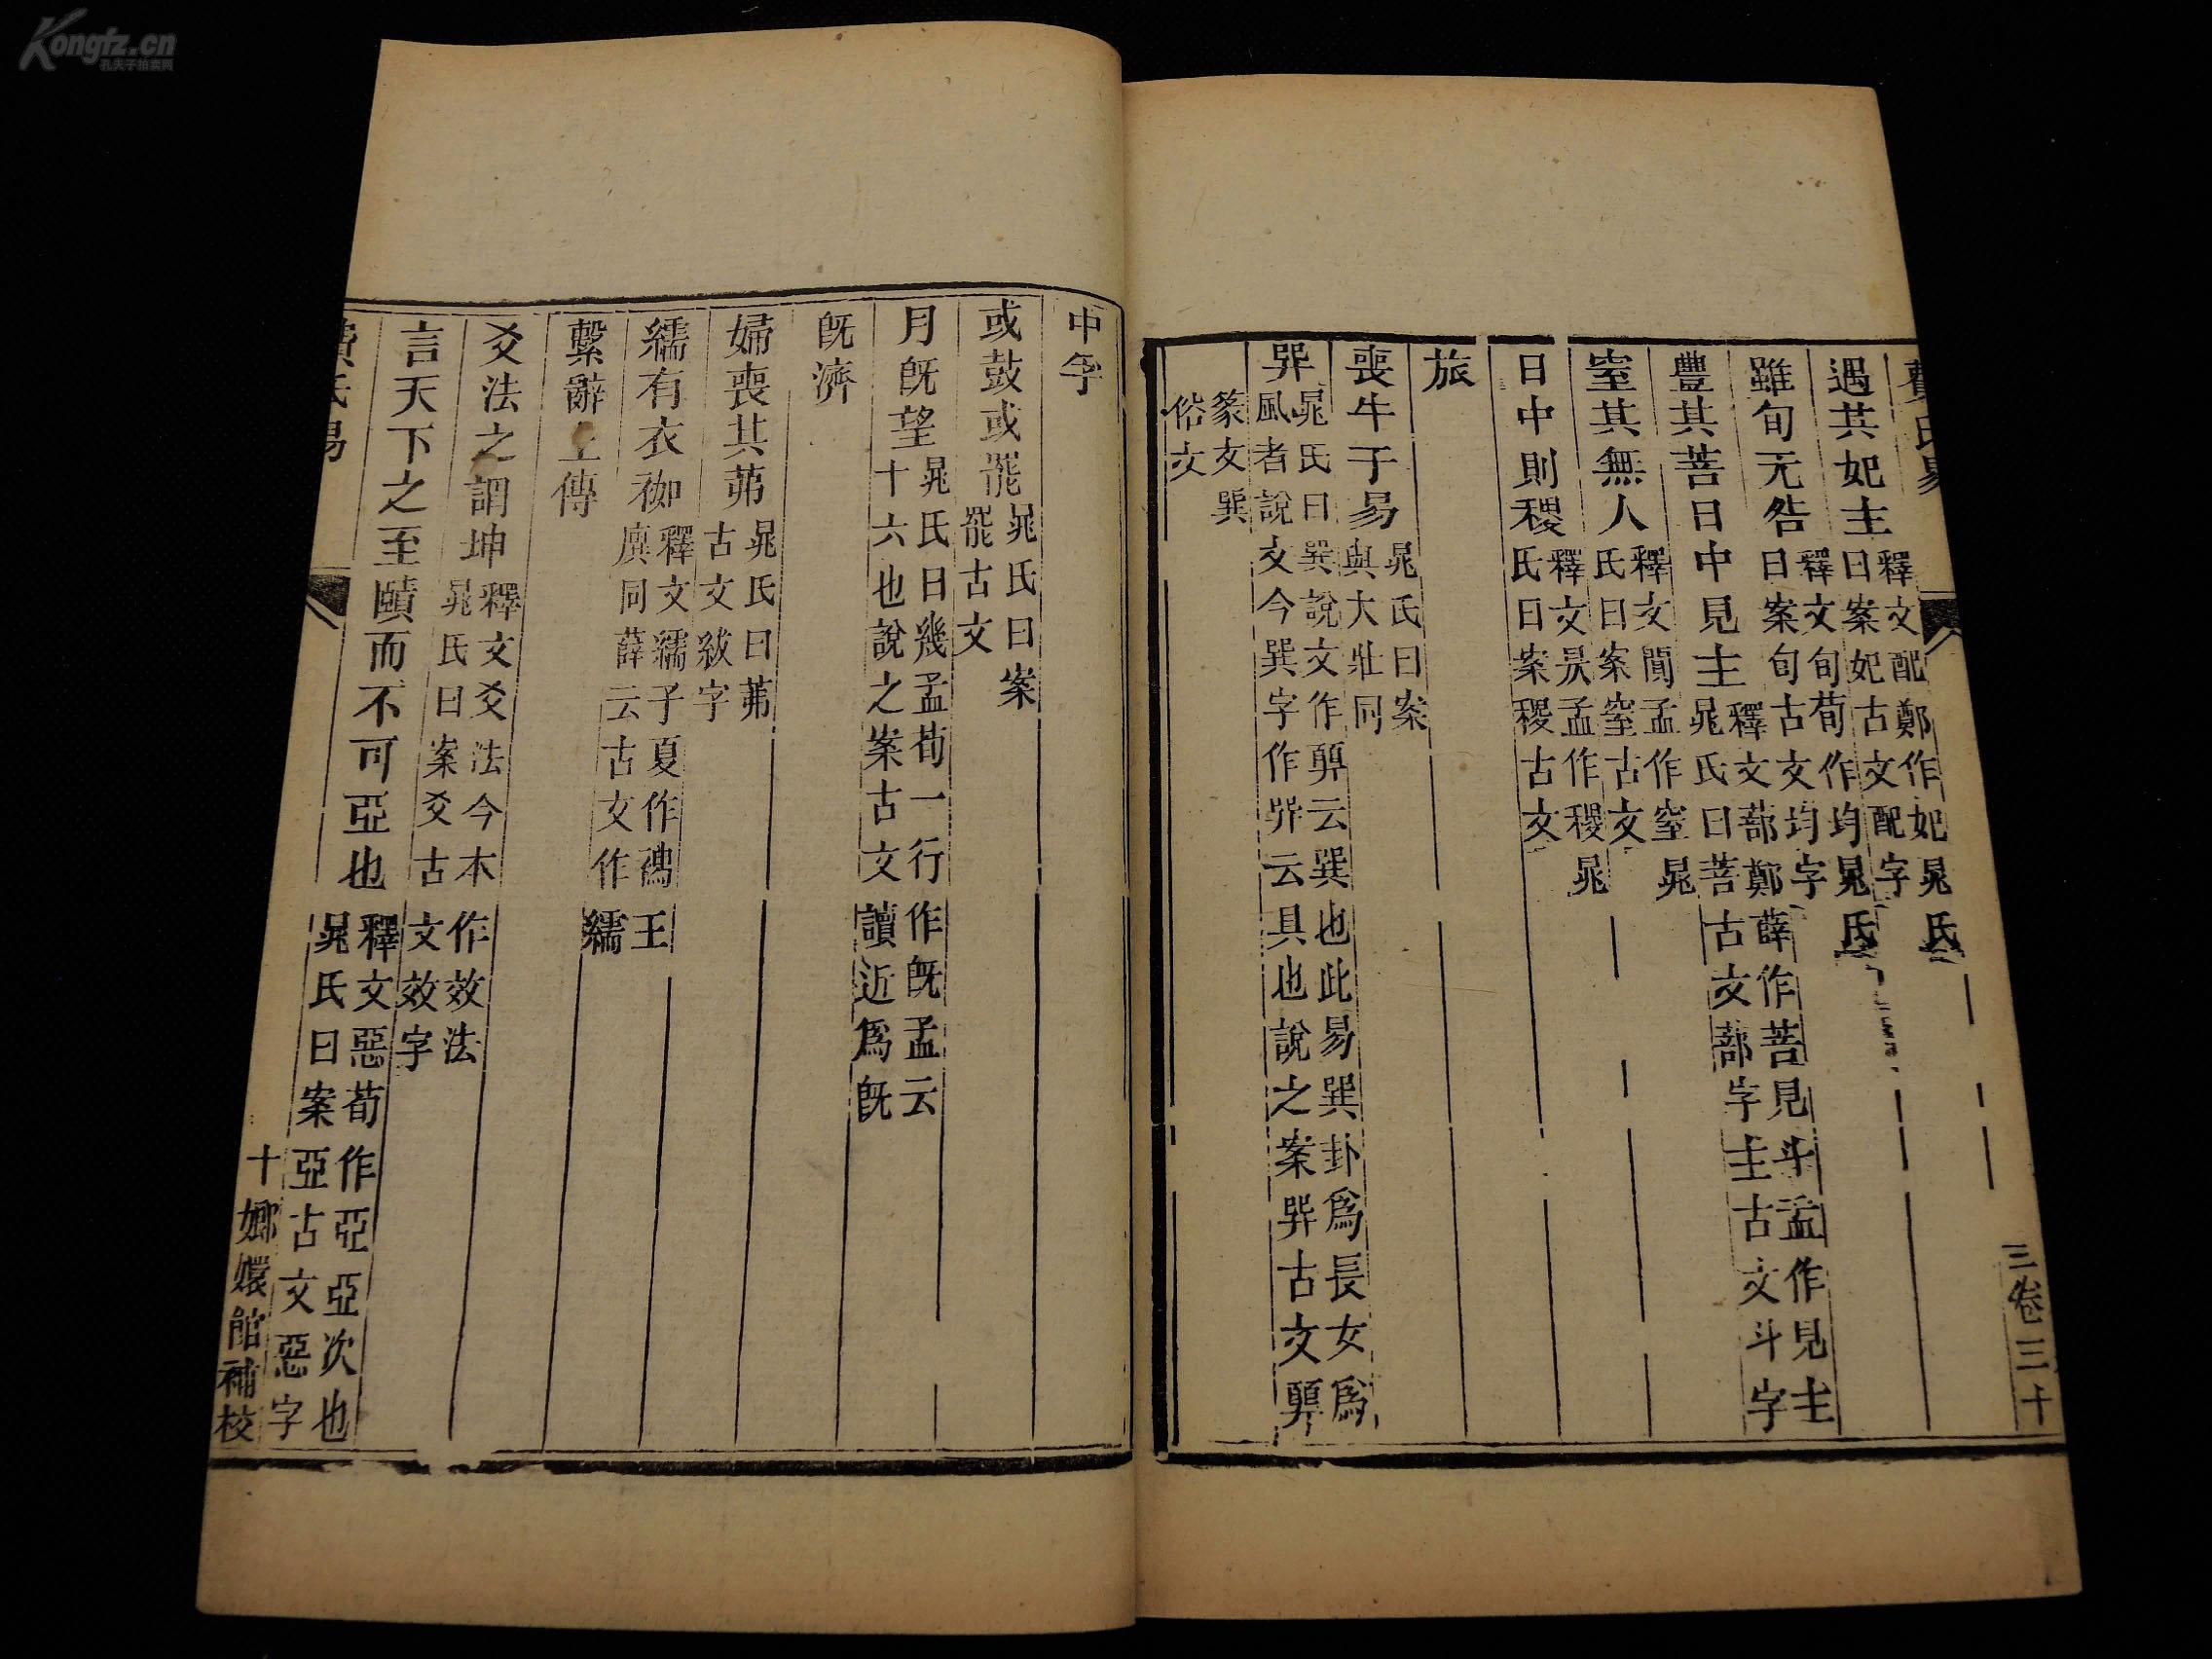 Kongfz.cn
孔夫子拍卖网
費氏易
三卷三十
遇其妃主釋文配鄭作妃晁氏曰案妃古文配字
雖旬无咎釋文旬荀作均晁氏曰案旬古文均字
豐其菩日中見主釋文蔀鄭薛作菩見斗孟作見主晁氏曰菩古文蔀字主古文斗字
窒其無人釋文闃孟作窒晁氏曰案窒古文
日中則稷釋文昃孟作稷晁氏曰案稷古文
旅
喪牛于易晁氏曰案與大壯同
巺晁氏曰巽說文作顨云巽也此易巽卦爲長女爲風者說文今巽字作巺云具也說之案巺古文顨篆文巽俗文
中孚
或鼓或罷晁氏曰案罷古文
月旣望晁氏曰幾孟荀一行作旣孟云十六也說之案古文讀近爲旣
旣濟
婦喪其茀晁氏曰茀古文紱字
繻有衣袽釋文繻子夏作襦王廙同薛云古文作繻
繫辭上傳
爻法之謂坤釋文爻法今本作效法晁氏曰案爻古文效字
言天下之至賾而不可亞也釋文惡荀作亞亞次也晁氏曰案亞古文惡字
費氏易
十
嫏嬛館補校